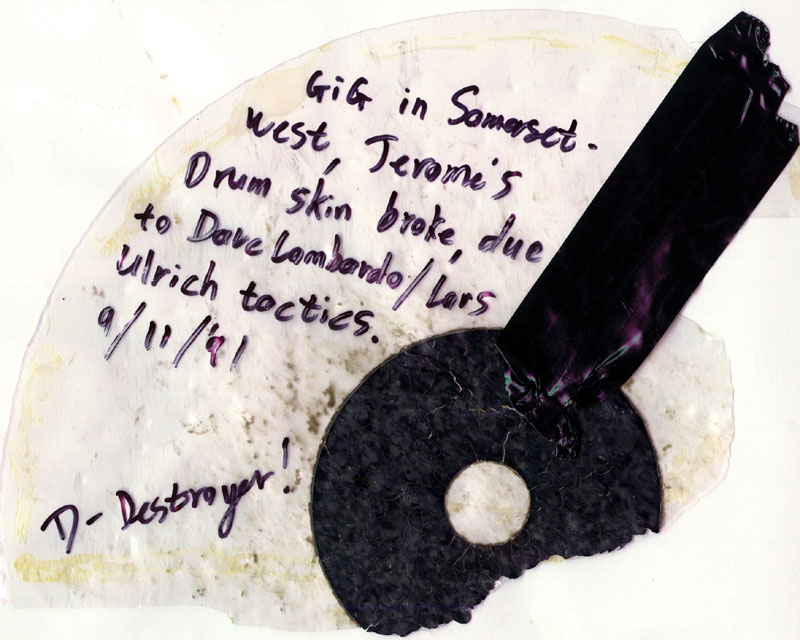 GiG in Somerset-
West, Jerome's
Drum skin broke, due
to Dave Lombardo/Lars
Ulrich tactics.
9/11/'91
D-Destroyer!